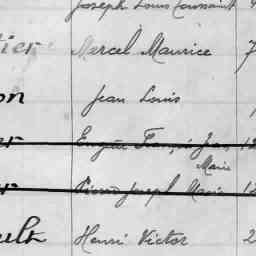 Joseph Louis Toussaint
tier Marcel Maurice 7
on Jean Louis
er Eugène François Jean 12
Marie
er Pierre Joseph Marie 12
ult Henri Victor 2